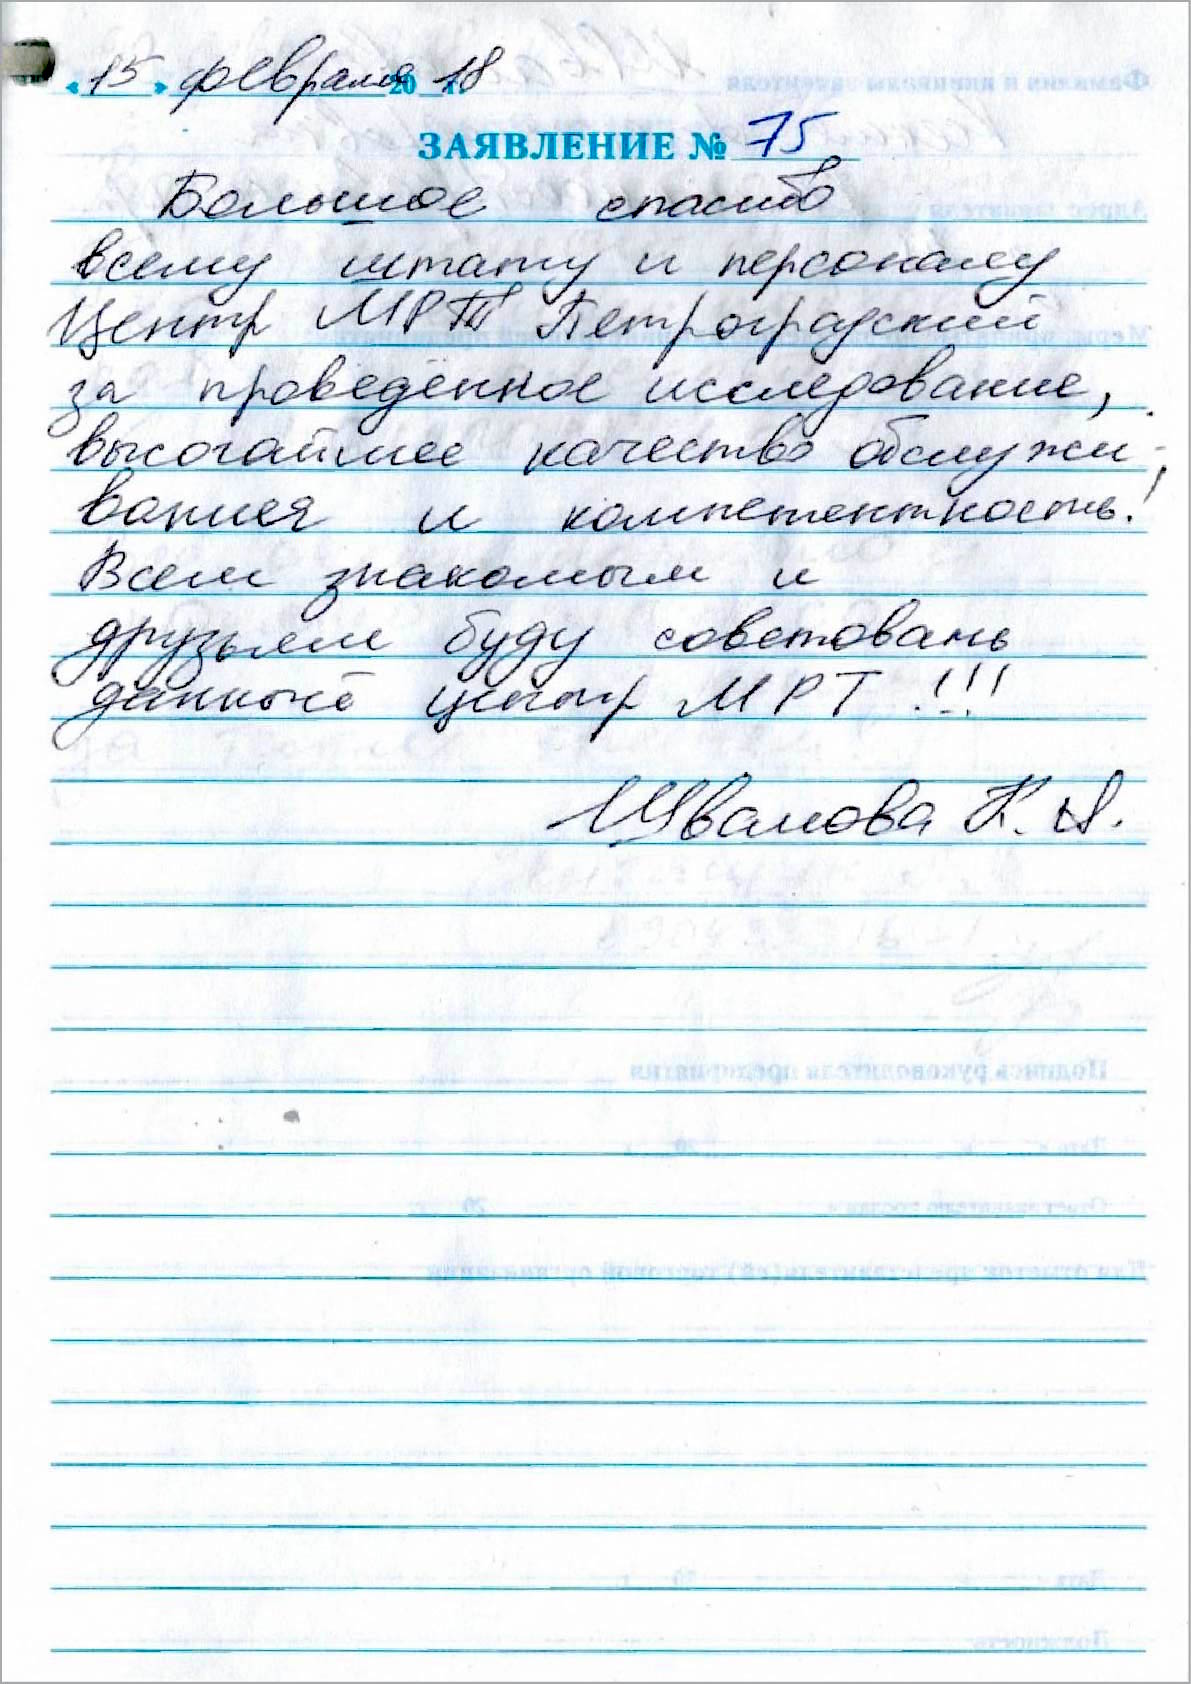 «15» февраля 20 18
ЗАЯВЛЕНИЕ № 75
Большое спасибо
всему штату и персоналу
Центр МРТ Петроградский
за проведённое исследование,
высочайшее качество обслужи-
вания и компетентность!
Всем знакомым и
друзьям буду советовать
данный центр МРТ !!!
К. А.